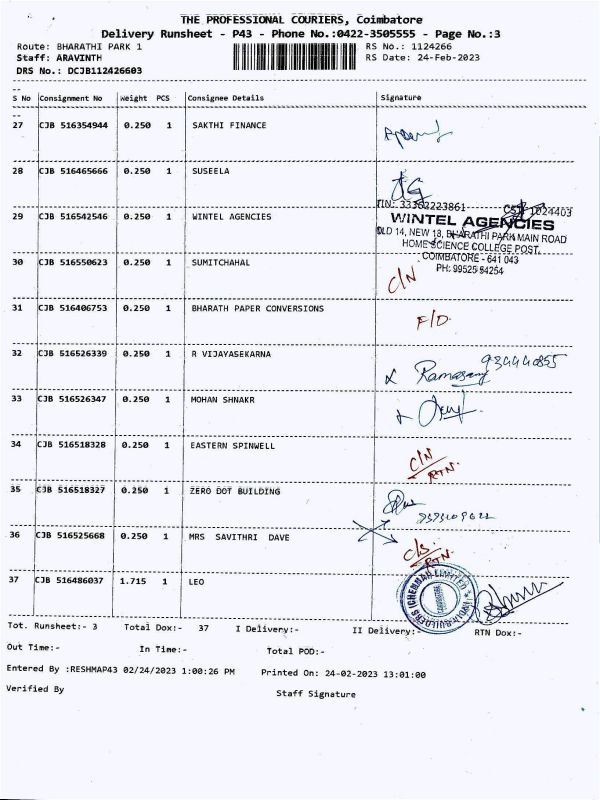 THE PROFESSIONAL COURIERS, Coimbatore
Delivery Runsheet - P43 - Phone No.:0422-3505555 - Page No.:3
Route: BHARATHI PARK 1 RS No.: 1124266
Staff: ARAVINTH RS Date: 24-Feb-2023
DRS No.: DCJB112426603
S No Consignment No Weight PCS Consignee Details Signature
27 CJB 516354944 0.250 1 SAKTHI FINANCE
28 CJB 516465666 0.250 1 SUSEELA
TIN: 33362223861 CST 1024403
29 CJB 516542546 0.250 1 WINTEL AGENCIES WINTEL AGENCIES
OLD 14, NEW 13, BHARATHI PARK MAIN ROAD
HOME SCIENCE COLLEGE POST,
COIMBATORE - 641 043
PH: 99525 84254
30 CJB 516550623 0.250 1 SUMITCHAHAL C/N
31 CJB 516406753 0.250 1 BHARATH PAPER CONVERSIONS F/D
32 CJB 516526339 0.250 1 R VIJAYASEKARNA Ramasamy
33 CJB 516526347 0.250 1 MOHAN SHNAKR
34 CJB 516518328 0.250 1 EASTERN SPINWELL C/N RTN.
35 CJB 516518327 0.250 1 ZERO DOT BUILDING
36 CJB 516525668 0.250 1 MRS SAVITHRI DAVE C/S RTN.
37 CJB 516486037 1.715 1 LEO
Tot. Runsheet:- 3 Total Dox:- 37 I Delivery:- II Delivery:- RTN Dox:-
Out Time:- In Time:- Total POD:-
Entered By :RESHMAP43 02/24/2023 1:00:26 PM Printed On: 24-02-2023 13:01:00
Verified By Staff Signature